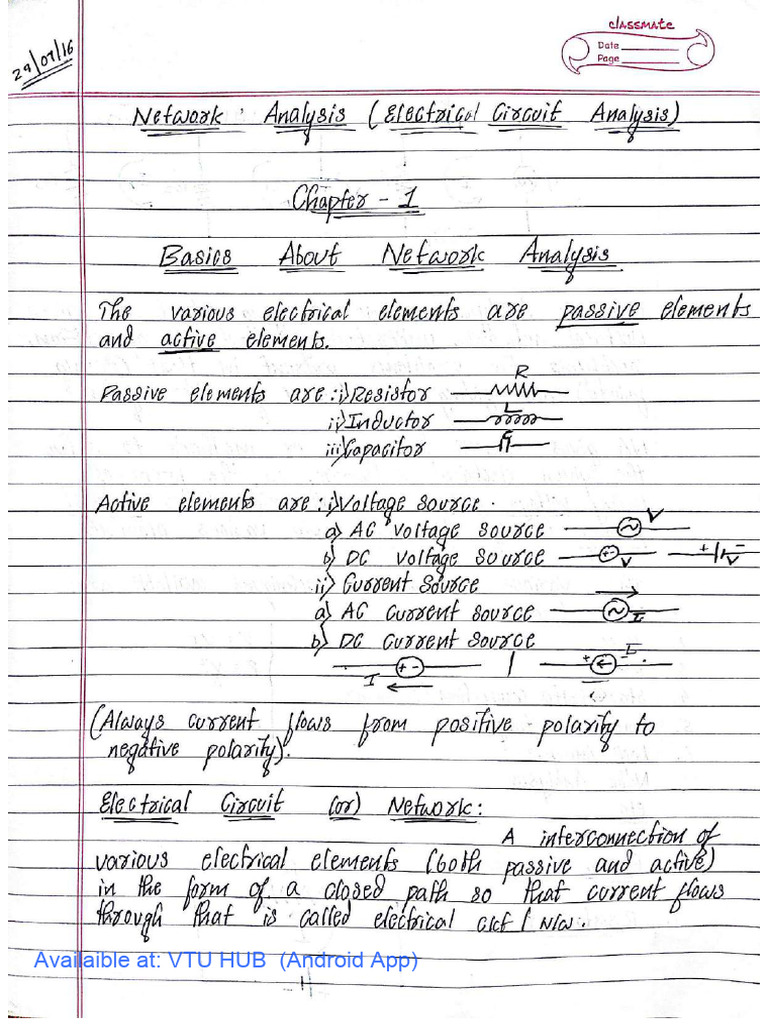 classmate
Date
Page
29/07/16
Network Analysis (Electrical Circuit Analysis)
Chapter - 1
Basics About Network Analysis
The various electrical elements are passive elements
and active elements.
Passive elements are : i) Resistor R
ii) Inductor L
iii) Capacitor C
Active elements are : i) Voltage source.
a) AC voltage source V
b) DC voltage source V + - V
ii) Current Source
a) AC current source I
b) DC current source
I + - / + - I
(Always current flows from positive polarity to
negative polarity).
Electrical Circuit (or) Network:
A interconnection of
various electrical elements (both passive and active)
in the form of a closed path so that current flows
through that is called electrical ckt / N/W.
Availaible at: VTU HUB (Android App)